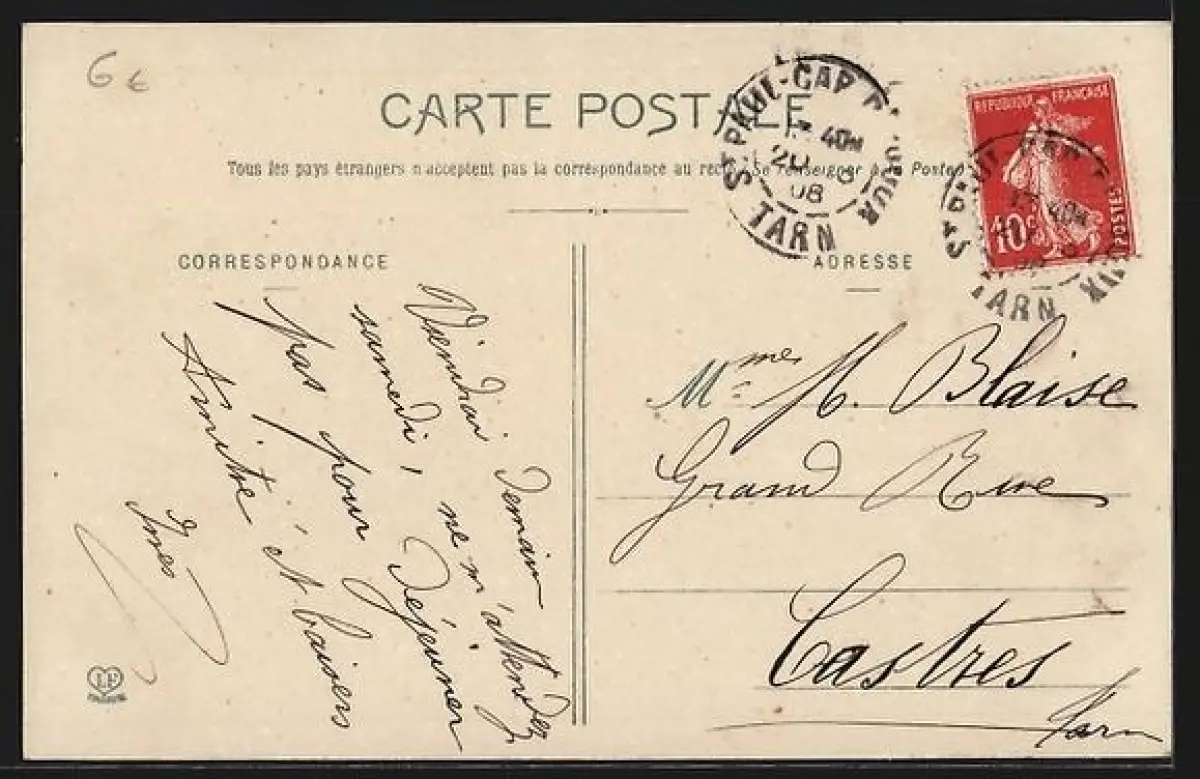 6 €
CARTE POSTALE
Tous les pays étrangers n'acceptent pas la correspondance au recto (Se renseigner à la Poste)
CORRESPONDANCE
ADRESSE
ST PAUL-CAP DE JOUX
40M
20
08
TARN
REPUBLIQUE FRANÇAISE
10c
POSTES
ST PAUL-CAP
40M
JOUX
TARN
Viendrai demain
samedi, ne m'attendez
pas pour déjeuner
Amitié et baisers
Inès
Mme H. Blaise
Grand Rue
Castres
Tarn